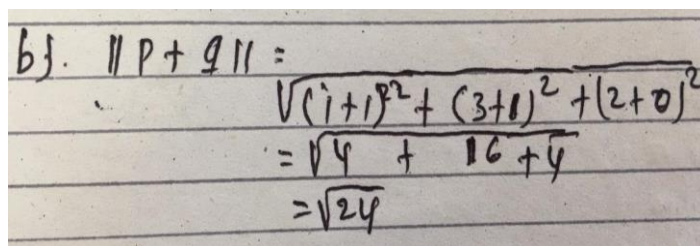 b). ||p + q|| =
√(1+1)² + (3+1)² + (2+0)²
= √4 + 16 + 4
= √24